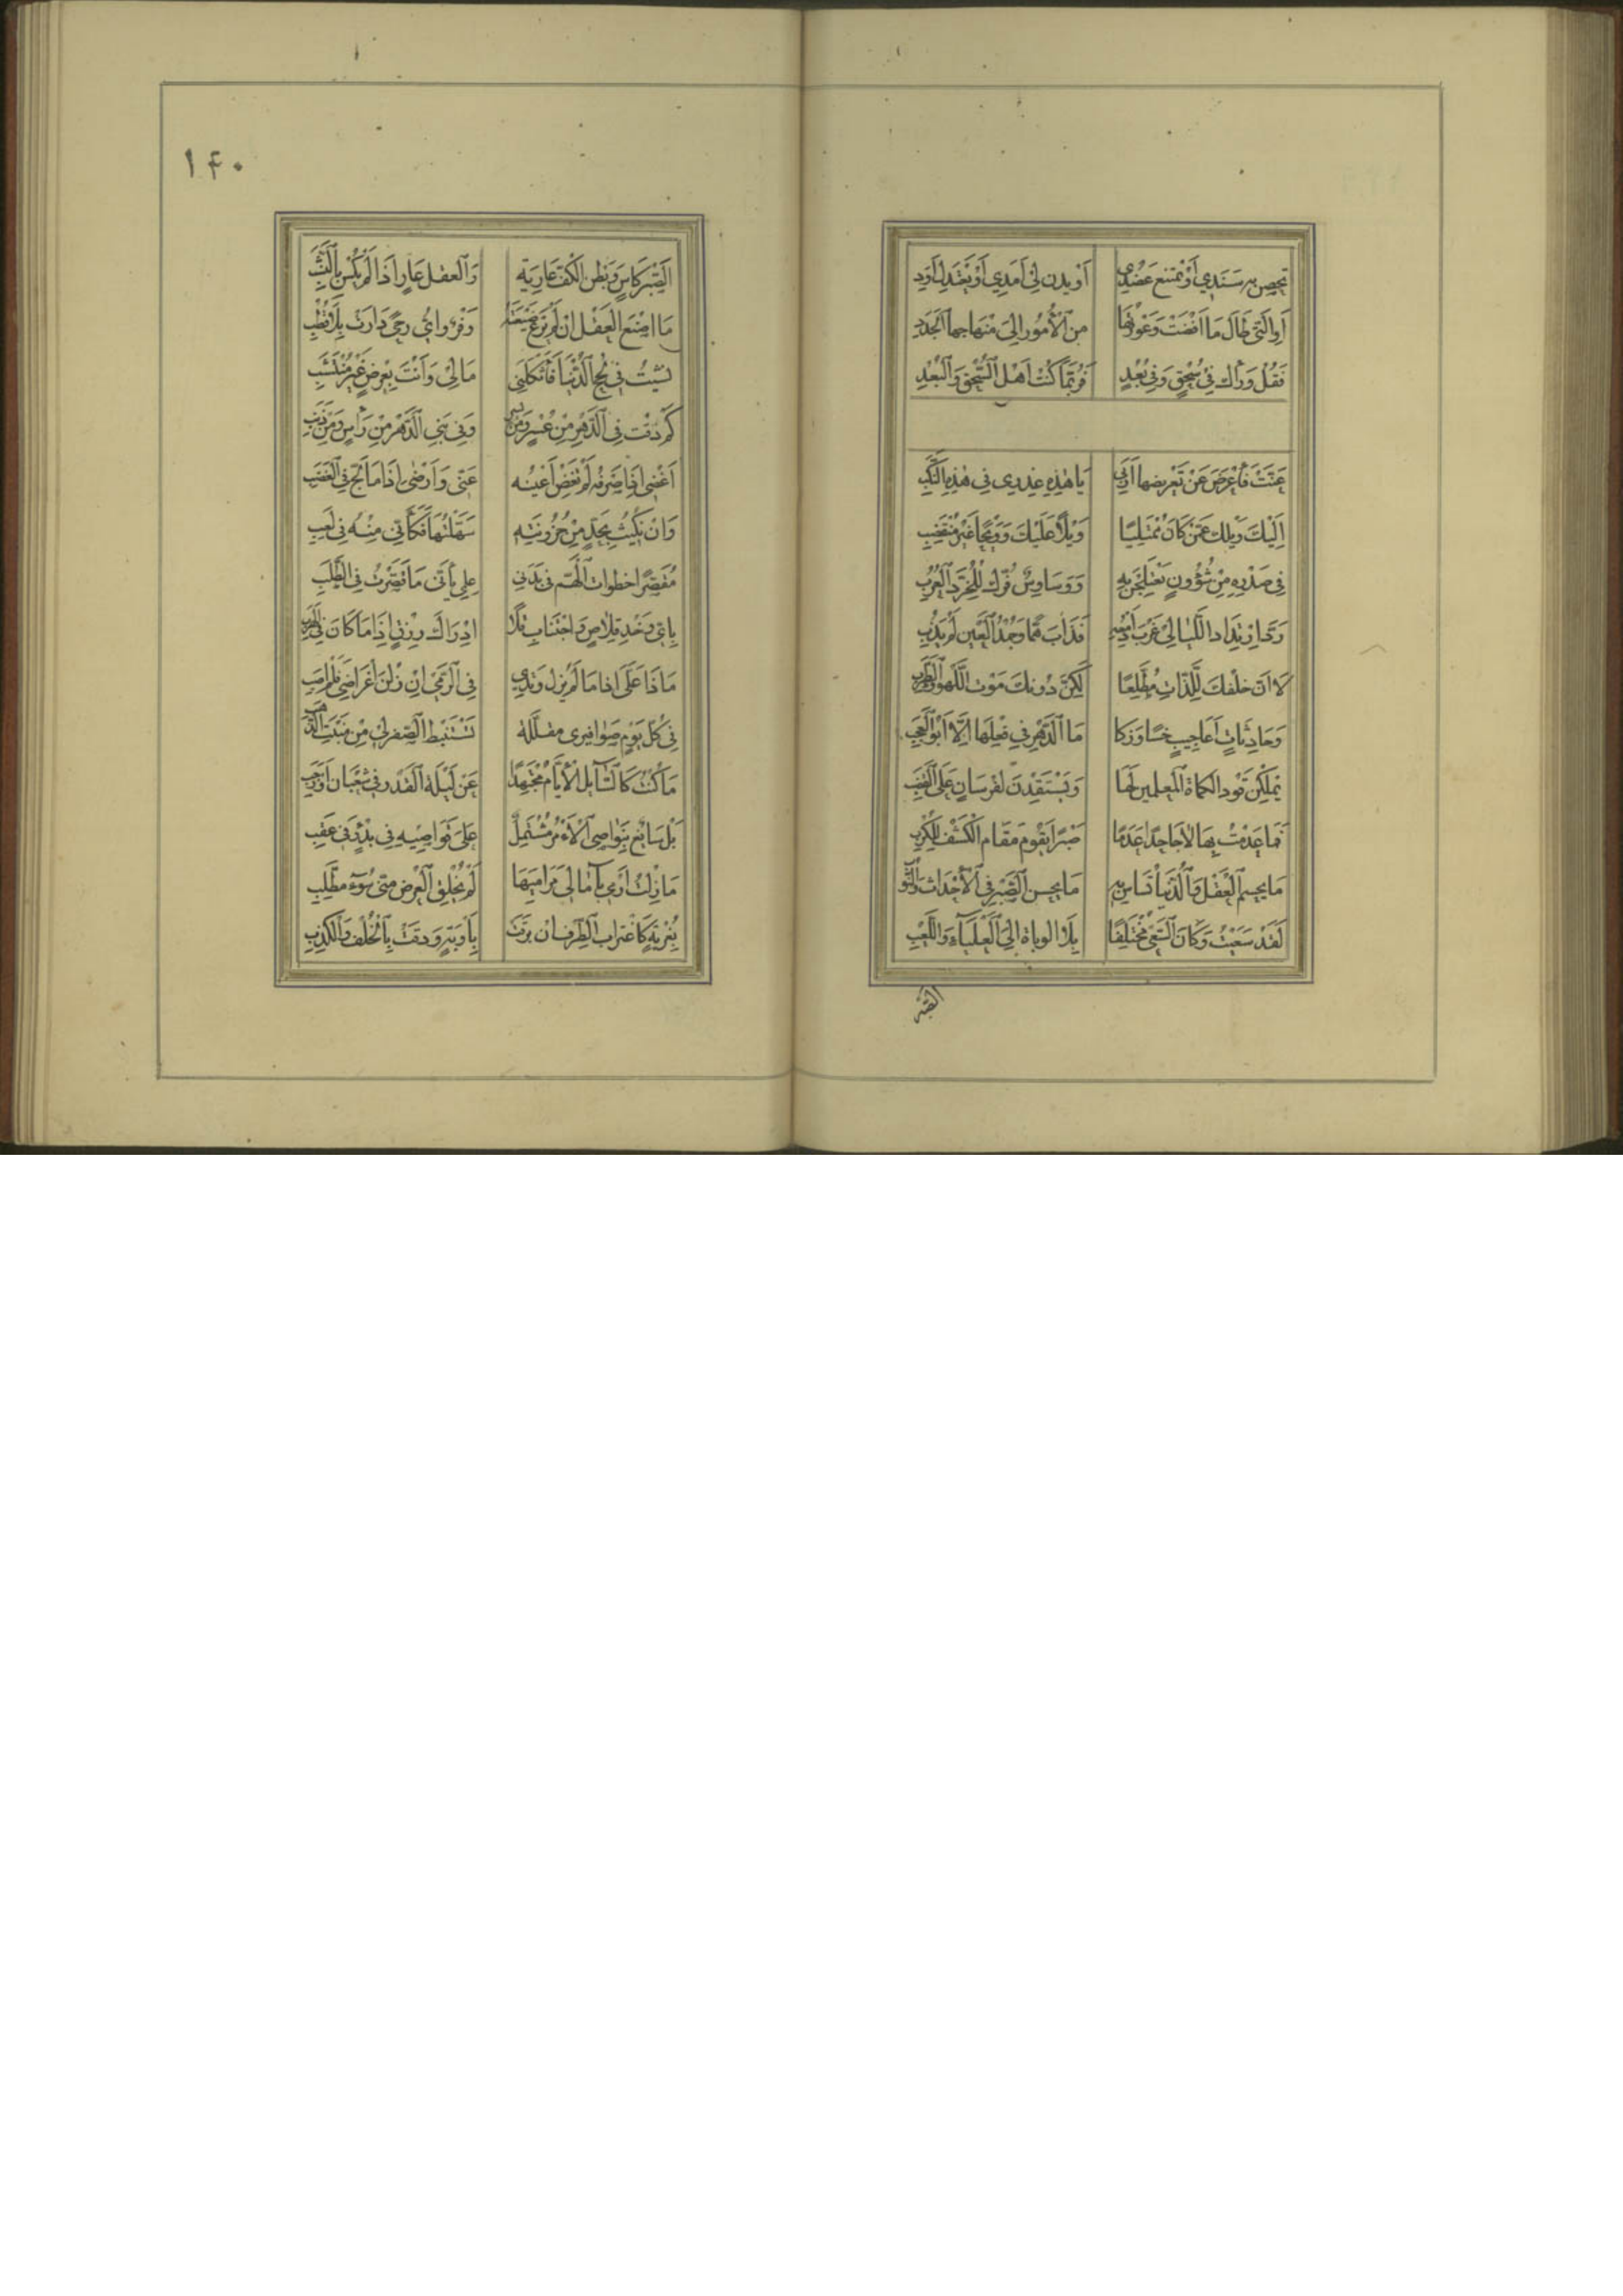 تحصن به سَنَدِي أَوْ تمنع عَضُدِي أَوْ يدن لِي أَمَدِي أَوْ يَعْتَدِلْ أَوَدِي
أَوِ الَّتِي طَالَ مَا أَفْضَتْ وَعَوْدَتُهَا مِنَ الْأُمُورِ إِلَى مِنْهَاجِهَا الْجَدَدِ
فَقُلْ وَرَاك فِي سُحْقٍ وَفِي بُعْدٍ فَرُبَّمَا كُنْتَ أَهْلَ السُّحْقِ وَالْبُعْدِ
عَنَّتْ فَأَعْرَضَ عَنْ تَعْرِيضِهَا أَرَبِي يَا هٰذِهِ عِذْرِي فِي هٰذِهِ النُّكَبِ
إِلَيْكَ وَيْلَك عَمَّنْ كَانَ مُمْتَلِيًا وَيْلًا عَلَيْكَ وَوَيْحًا غَيْرَ مُنْقَضِبِ
فِي صَدْرِهِ مِنْ شُؤُونٍ يَعْتَلِجْنَ بِهِ وَوَسَاوِسٌ فُرَّك لِلْخُرَّدِ الْعُرُبِ
وَرَدَّ ارْتِدَاد اللَّيَالِي غَرْبَ أَدْمُعِهِ فَذَابَ هَمًّا وَجُمْدُ الْعَيْنِ لَمْ يَذُبِ
لَا أَنَّ خَلْفَكَ لِلَّذَّاتِ مُطَّلَعًا لٰكِنَّ دُونَكَ مَوْت اللَّهْوِ وَالطَّرَبِ
وَحَادِثَاتِ أَعَاجِيبٍ خَسًا وَزَكَا مَا الدَّهْرُ فِي فِعْلِهَا إِلَّا أَبُو الْعَجَبِ
يَمْلِكْنَ قَوْد الْكُمَاة الْمُعْلِمِين لَهَا وَيَسْتَقِدْنَ لِفُرْسَانٍ عَلَى الْقَصَبِ
فَمَا عَدِمْتُ بِهَا لَا جَاحِدًا عَدَمًا صَبْرًا يَقُومُ مَقَام الْكَشْفِ لِلْكُرَبِ
مَا يحسم الْعَقْل وَالدُّنْيَا تُسَاسُ بِهِ مَا يحسم الصَّبْر فِي الْأَحْدَاث وَالنُّوَبِ
لَقَدْ سَعَيْتُ وَكَانَ السَّعْيُ مُخْتَلِفًا إِلَى الْعَلْيَاءِ وَاللَّعِبِ
الصبر
١٤٠
الصَّبْرُ كَاسٍ وَبَطْنُ الْكَفِّ عَارِيَةٌ وَالْعَقْل عَارٍ إِذَا لَمْ يُكْسَ بِالنَّشَبِ
مَا أَضْيَعَ الْعَقْلَ إِنْ لَمْ يَرْعَ ضَيْعَتَهُ وَفْرٌ وَأَيُّ رحًى دَارَتْ بِلَا قُطُبِ
نَشِبْتُ فِي لُجَجِ الدُّنْيَا فَأَثْكَلَنِي مَالِي وَأُبْتُ بِعِرْضٍ غَيْرِ مُنْتَشَبِ
كَمْ ذُقْتُ فِي الدَّهْرِ مِنْ عُسْرٍ وَمِنْ يُسُرٍ وَفِي بَنِي الدَّهْرِ مِنْ رَأْسٍ وَمِنْ ذَنَبِ
أُغْضِي إِذَا صَرْفُهُ لَمْ تُغْضِ أَعْيُنُهُ عَنِّي وَأَرْضَى إِذَا مَا لَجَّ فِي الْغَضَبِ
وَإِنْ نُكِبْتُ بِجِدٍّ مِنْ حُزُونَتِهِ سَهَّلْتُهَا فَكَأَنِّي مِنْهُ فِي لَعِبِ
مُقَصِّرًا خَطَوَات الْهَمّ فِي بَدَنِي عِلْمِي بِأَنِّي مَا قَصَّرْتُ فِي الطَّلَبِ
بِأَيِّ وَخْدِ قِلَاصٍ وَاجْتِنَابِ فَلَا إِدْرَاك رِزْقٍ إِذَا مَا كَانَ فِي الْهَرَبِ
مَاذَا عَلَيَّ إِذَا مَا لَمْ يَزُلْ وَتَرِي فِي الرَّمْيِ أَنْ زُلْنَ أَغْرَاضِي فَلَمْ أُصِبِ
فِي كُلِّ يَوْمٍ مفللة تَسْتَنْبِطُ الصُّفْر لِي مِنْ مَنْبِتِ الذَّهَبِ
مَا كُنْتُ كَالسَّائِلِ الْأَيَّامَ مُجْتَهِدًا عَنْ لَيْلَةِ الْقَدْرِ فِي شَعْبَانَ أَوْ رَجَبِ
بَلْ سَافِعٌ بِنَوَاصِي الْأَمْرِ مُشْتَمِلٌ عَلَى قَوَاصِيهِ فِي بَدْءٍ وَفِي عَقِبِ
مَا زِلْتُ أَرْمِي بِآمَالِي مَرَامِيَهَا لَمْ يُخْلِقِ الْعِرْضَ مِنِّي سُوءُ مُطَّلَبِ
بِغُرْبَةٍ كَاغْتِرَاب الطَّرْف إِنْ بَرَقَتْ بِأَوْبَةٍ وَدَقَتْ بِالْخُلْفِ وَالْكَذِبِ